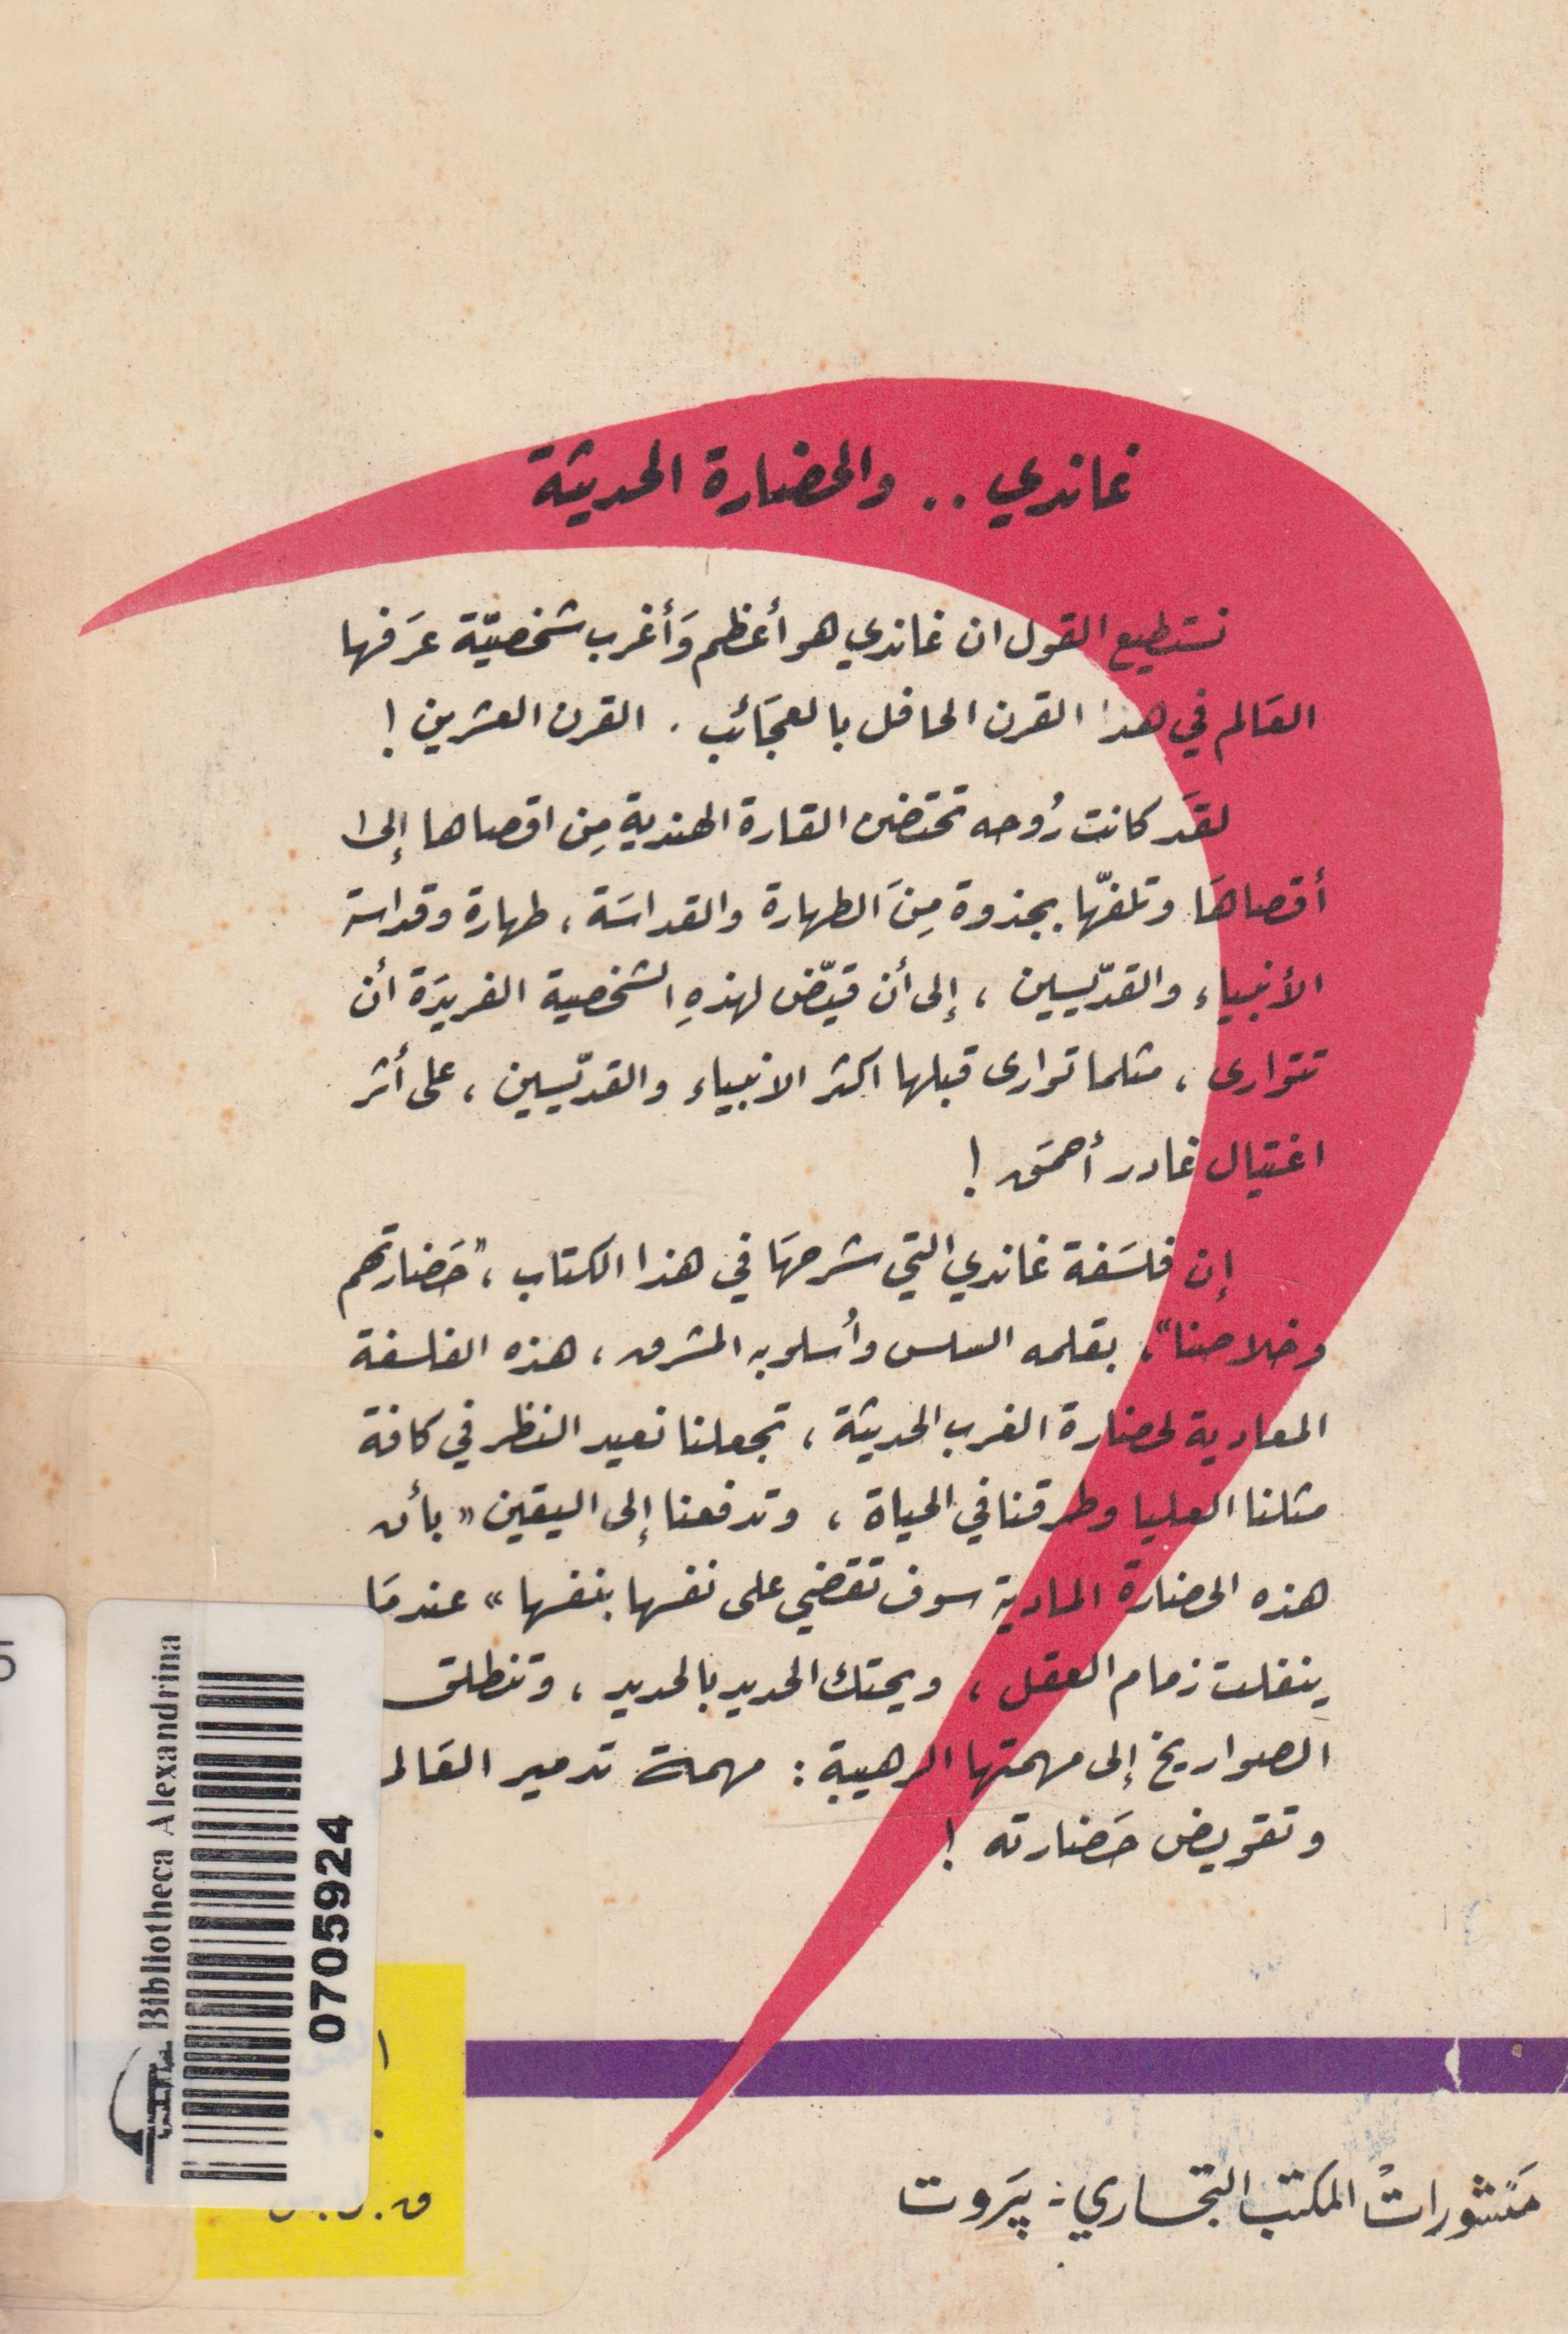 غاندي .. والحضارة الحديثة
نستطيع القول ان غاندي هو أعظم وَأغرب شخصيّة عرَفها
العَالم في هذا القرن الحافل بالعجَائب . القرن العشرين !
لقَد كانت رُوحه تحتضن القارة الهندية مِن اقصاها إلى
أقصاهَا وتلفّها بجذوة مِنَ الطهارة والقداسَة ، طهارة وقداسة
الأنبياء والقدّيسين ، إلى أن قيّض لهذهِ الشخصية الفريدَة أن
تتوارى ، مثلما توارى قبلها اكثر الانبياء والقدّيسين ، على أثر
اغتيال غادر أحمَق !
إن فلسَفة غاندي التي شرحهَا في هذا الكتاب ، "حَضارتهم
وخلاصنا" ، بقلمه السلس وأُسلوبه المشرق ، هذه الفلسفة
المعادية لحضارة الغرب الحديثة ، تجعلنا نعيد النظر في كافة
مثلنا العليا وطرقنا في الحياة ، وتدفعنا إلى اليقين « بأن
هذه الحضارة المادية سوف تقضي على نفسها بنفسها » عندمَا
ينفلت زمام العقل ، ويحتك الحديد بالحديد ، وتنطلق
الصواريخ إلى مهمتها الرهيبة : مهمة تدمير العَالم
وتقويض حَضارته !
Bibliotheca Alexandrina
0705924
مَنشوراتْ المكتب التجاري - بيَروت